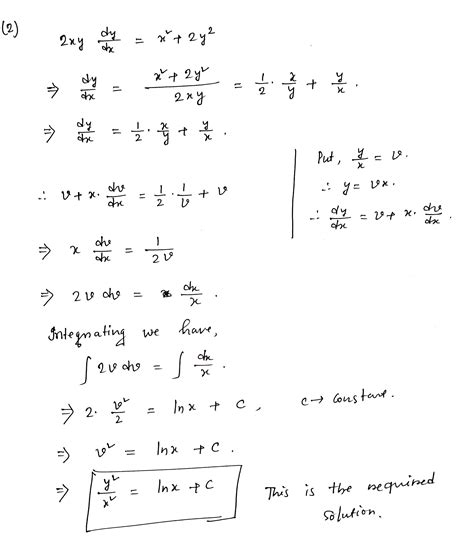 (2) 2xy dy/dx = x² + 2y²
⇒ dy/dx = (x² + 2y²)/(2xy) = 1/2 · x/y + y/x .
⇒ dy/dx = 1/2 · x/y + y/x .
Put, y/x = v.
∴ y = vx.
∴ dy/dx = v + x · dv/dx .
∴ v + x · dv/dx = 1/2 · 1/v + v
⇒ x dv/dx = 1/(2v)
⇒ 2v dv = dx/x .
Integrating we have,
∫ 2v dv = ∫ dx/x .
⇒ 2 · v²/2 = ln x + C , c → constant.
⇒ v² = ln x + C .
⇒ y²/x² = ln x + C
This is the required
solution.